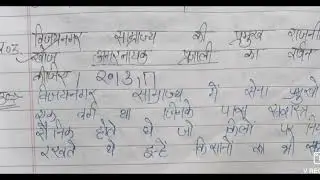 विजयनगर साम्राज्य की प्रमुख राजनी
खोज अमरनायक प्रणाली का वर्णन
कीजिए।
विजयनगर साम्राज्य में सेना प्रमुखो
एक वर्ग था जिनके पास सशस्त्र
सैनिक होते थे जो किलों पर नि
रखते थे इन्हें किसानों का भी